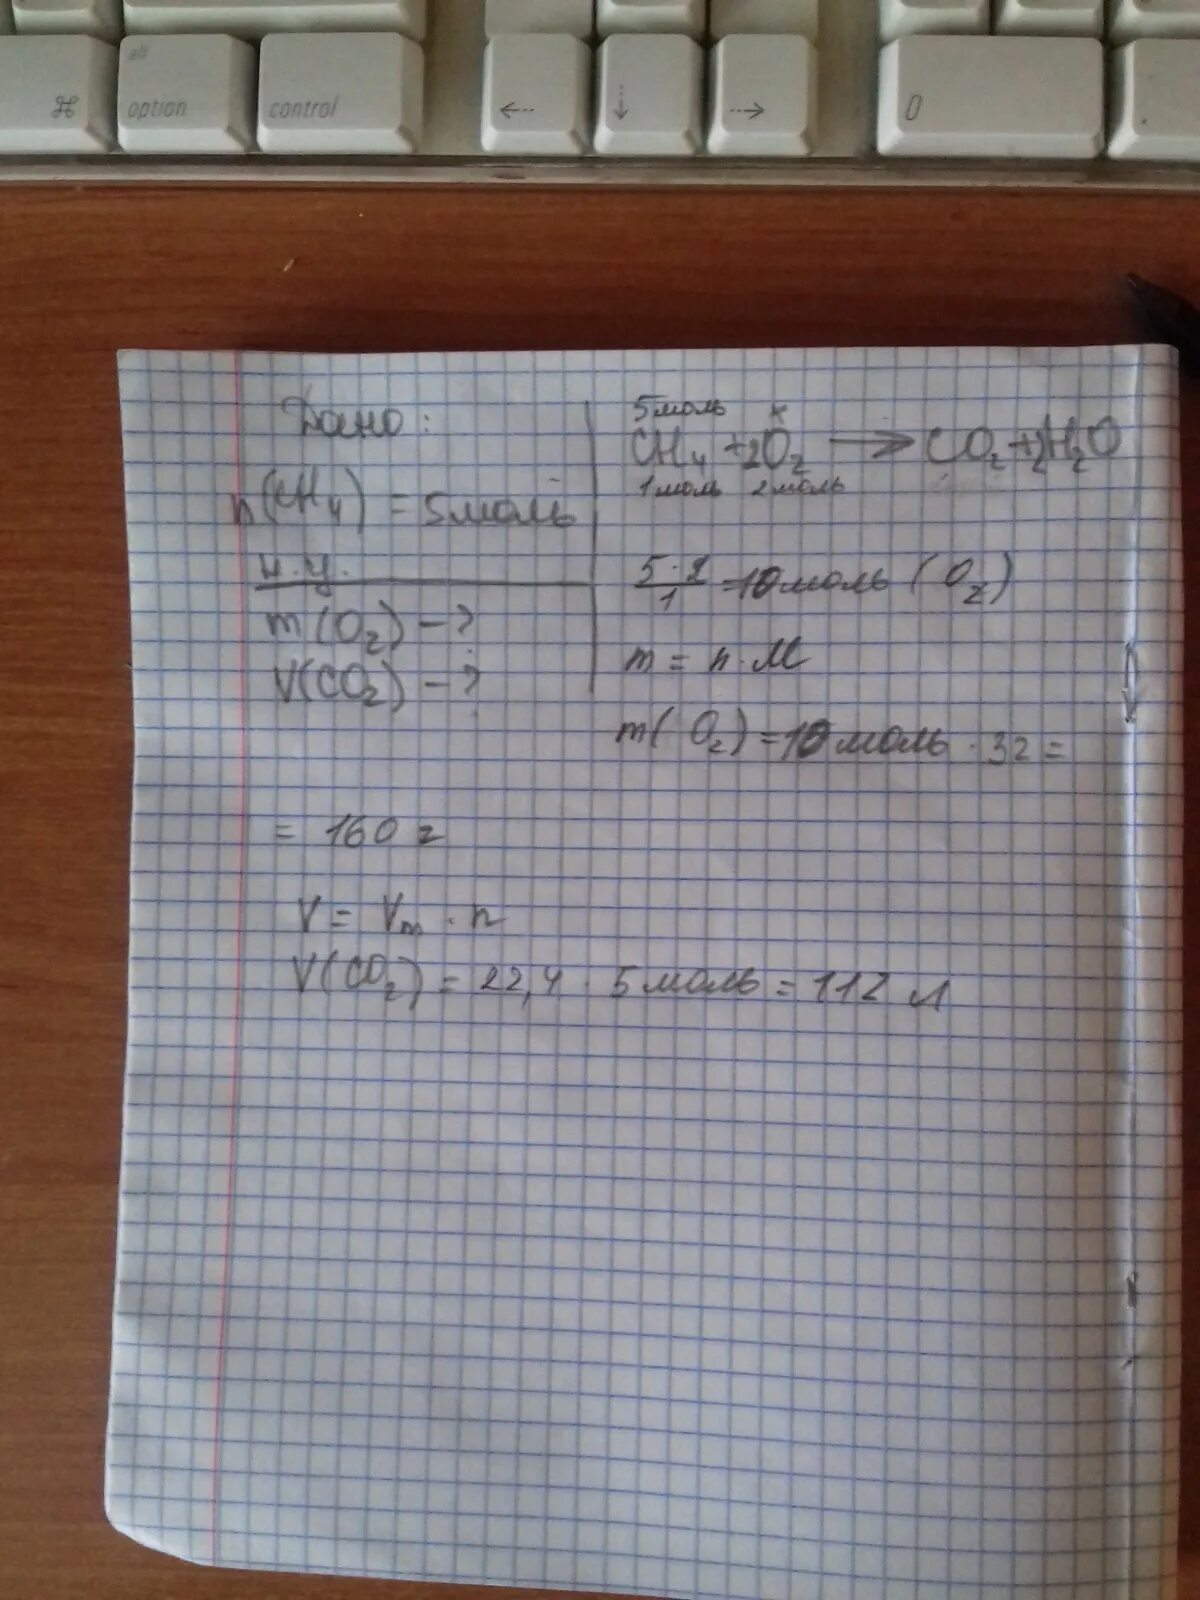 alt
⌘ option control ← ↓ → 0
Дано:
n(CH₄) = 5 моль
н.у.
m(O₂) – ?
V(CO₂) – ?
5 моль x
CH₄ + 2O₂ → CO₂ + 2H₂O
1 моль 2 моль
5 · 2 / 1 = 10 моль (O₂)
m = n · M
m(O₂) = 10 моль · 32 =
= 160 г
V = Vm · n
V(CO₂) = 22,4 · 5 моль = 112 л